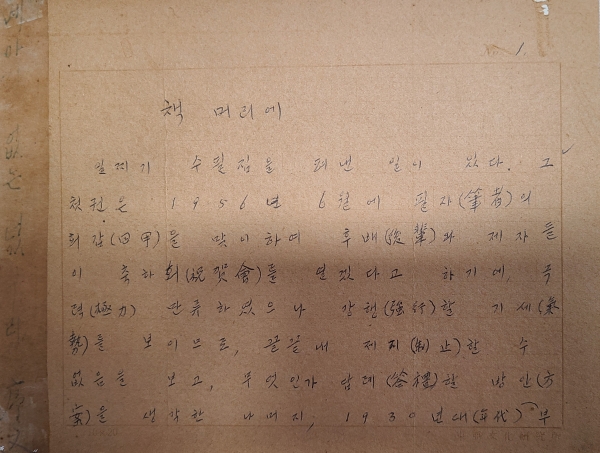 1.
책 머리에
일찌기 수필집을 펴낸 일이 있다. 그
첫권은 1956년 6월에 필자(筆者)의
회갑(回甲)을 맞이하여 후배(後輩)와 제자들
이 축하회(祝賀會)를 열겠다고 하기에, 극
력(極力) 만류하였으나 강행(強行)할 기세(氣
勢)를 보이므로, 끝끝내 제지(制止)한 수
없음을 보고, 무엇인가 답례(答禮)할 방안(方
案)을 생각한 나머지, 1930년대(年代) 부